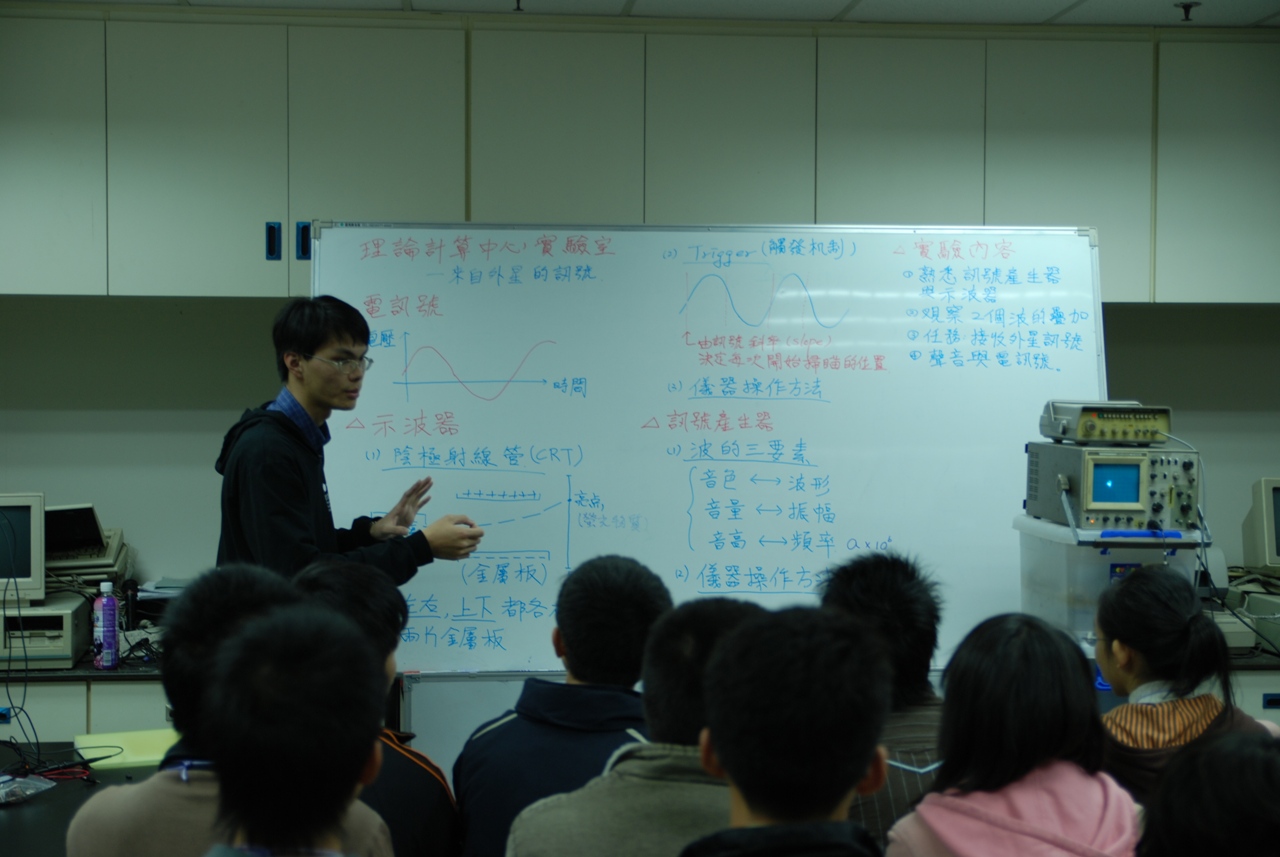 理論計算中心,實驗室
—來自外星的訊號
電訊號
電壓
時間
△示波器
(1) 陰極射線管(CRT)
亮点,
(螢光物質)
(金屬板)
左右,上下都各
兩片金屬板
(2) Trigger(觸發机制)
↑由訊號斜率(slope)
決定每次開始掃瞄的位置
(3) 儀器操作方法
△訊號產生器
(1) 波的三要素
音色 ↔ 波形
音量 ↔ 振幅
音高 ↔ 頻率
(2) 儀器操作方
△實驗內容
① 熟悉訊號產生器
與示波器
② 观察2個波的疊加
③ 任務 接收外星訊號
④ 聲音與電訊號。